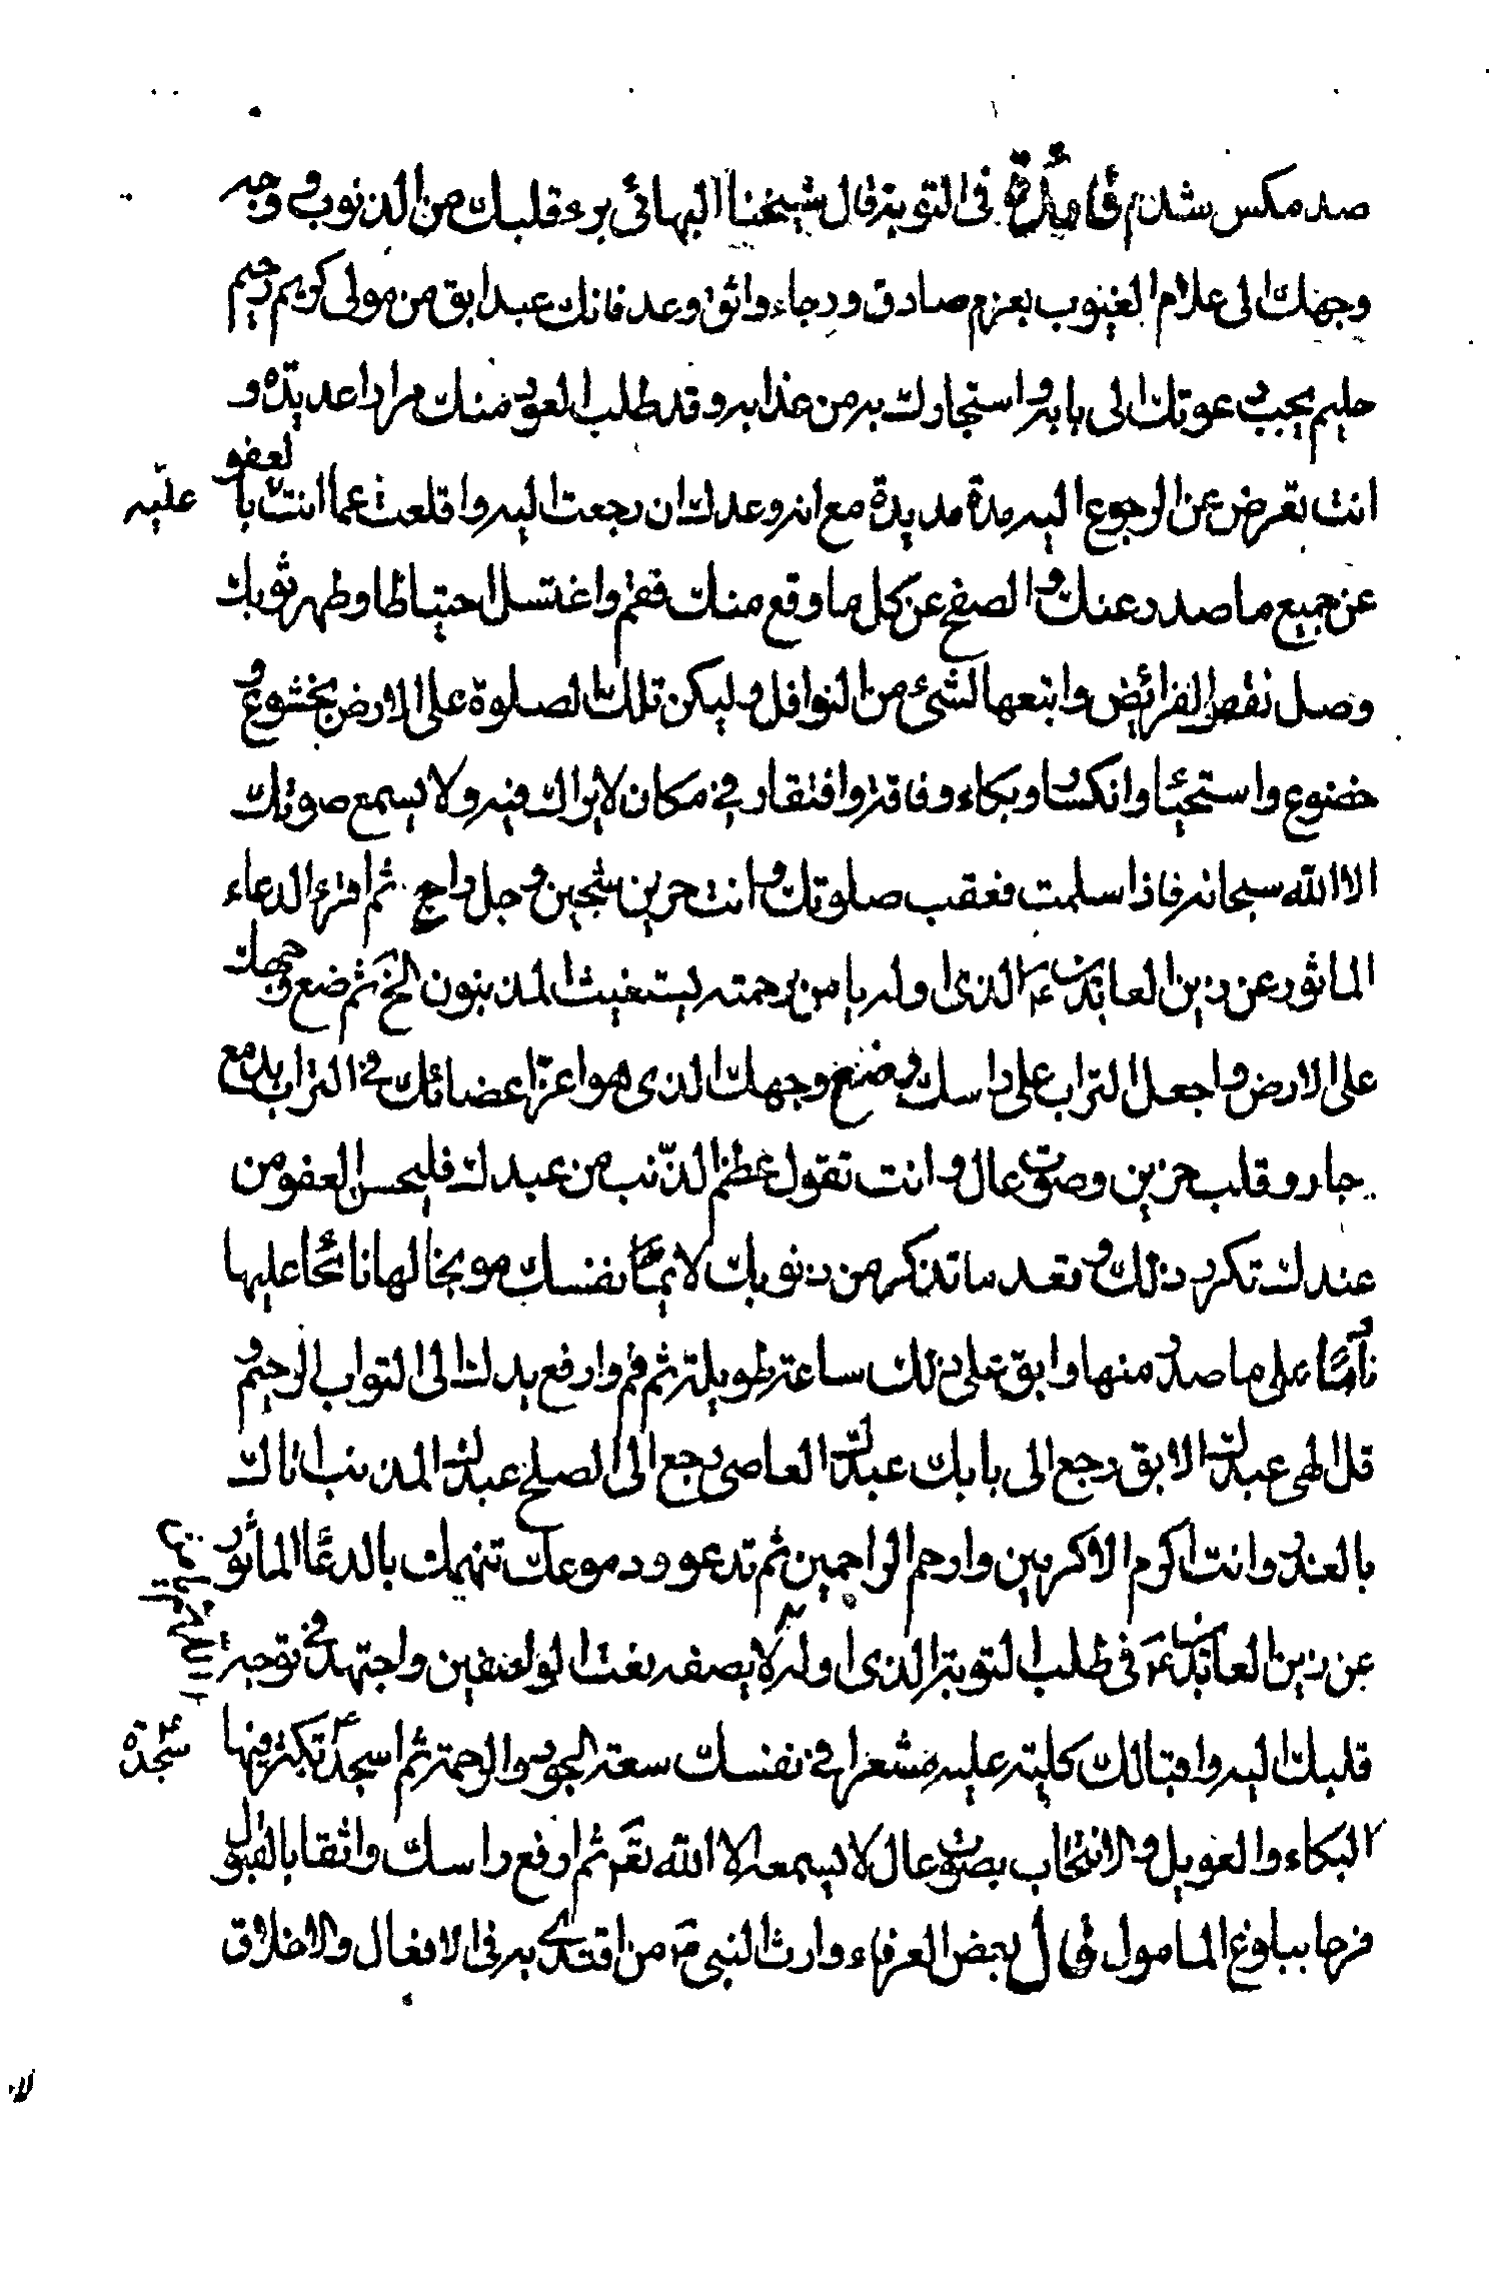 صد مكس شدم فائدة فى التوبة قال شيخنا البهائى برء قلبك من الذنوب و وجه
وجهك الى علام الغيوب بعزم صادق و رجاء واثق وعد فانك عبد ابق من مولى كريم رحيم
حليم يحب عوتك الى بابه و استجارتك به من عذابه و قد طلب العود منك مرارا عديدة و
انت تعرض عن الرجوع اليه مدة مديدة مع انه وعدك ان رجعت اليه و اقلعت عما انت عليه بالعفو
عن جميع ما صدر عنك و الصفح عن كل ما وقع منك فقم و اغتسل احتياطا و طهر ثوبك
و صل نقص الفرائض و اتبعها لشئ من النوافل و ليكن تلك الصلوة على الارض بخشوع و
خضوع و استحياء و انكسار و بكاء و فاقة و افتقار فى مكان لا يراك فيه و لا يسمع صوتك
الا الله سبحانه فاذا سلمت فعقب صلوتك و انت حزين شجين وجل راج ثم اقرء الدعاء
الماثور عن زين العابدين ع الذى اوله يا من برحمته يستغيث المذنبون الخ ثم ضع وجهك
على الارض و اجعل التراب على راسك و ضع وجهك الذى هو اعز اعضائك فى التراب بدمع
جار و قلب حزين و صوت عال و انت تقول عظم الذنب من عبدك فليحسن العفو من
عندك تكرر ذلك و تعد ما تذكر من ذنوبك لائما نفسك موبخا لها نائحا عليها
نادما على ما صدر منها و ابق على ذلك ساعة طويلة ثم قم و ارفع يدك الى التواب الرحيم و
قل الهى عبدك الابق رجع الى بابك عبدك العاصى رجع الى الصلح عبدك المذنب اتاك
بالعذر و انت اكرم الاكرمين و ارحم الراحمين ثم تدعو و دموعك تنهمل بالدعاء المأثور
عن زين العابدين ع فى طلب التوبة الذى اوله لا يصفه نعت الواصفين و اجتهد فى توجه
قلبك اليه و اقبالك بكليته عليه مشعرا فى نفسك سعة الجود و الرحمة ثم اسجد سجدة تكثر فيها
البكاء و العويل و الانتحاب بصوت عال لا يسمعه الا الله تع ثم ارفع راسك واثقا بالقبول
فرحا ببلوغ المامول قال بعض العرفاء وارث النبى ص من اقتدى به فى الافعال و الاخلاق